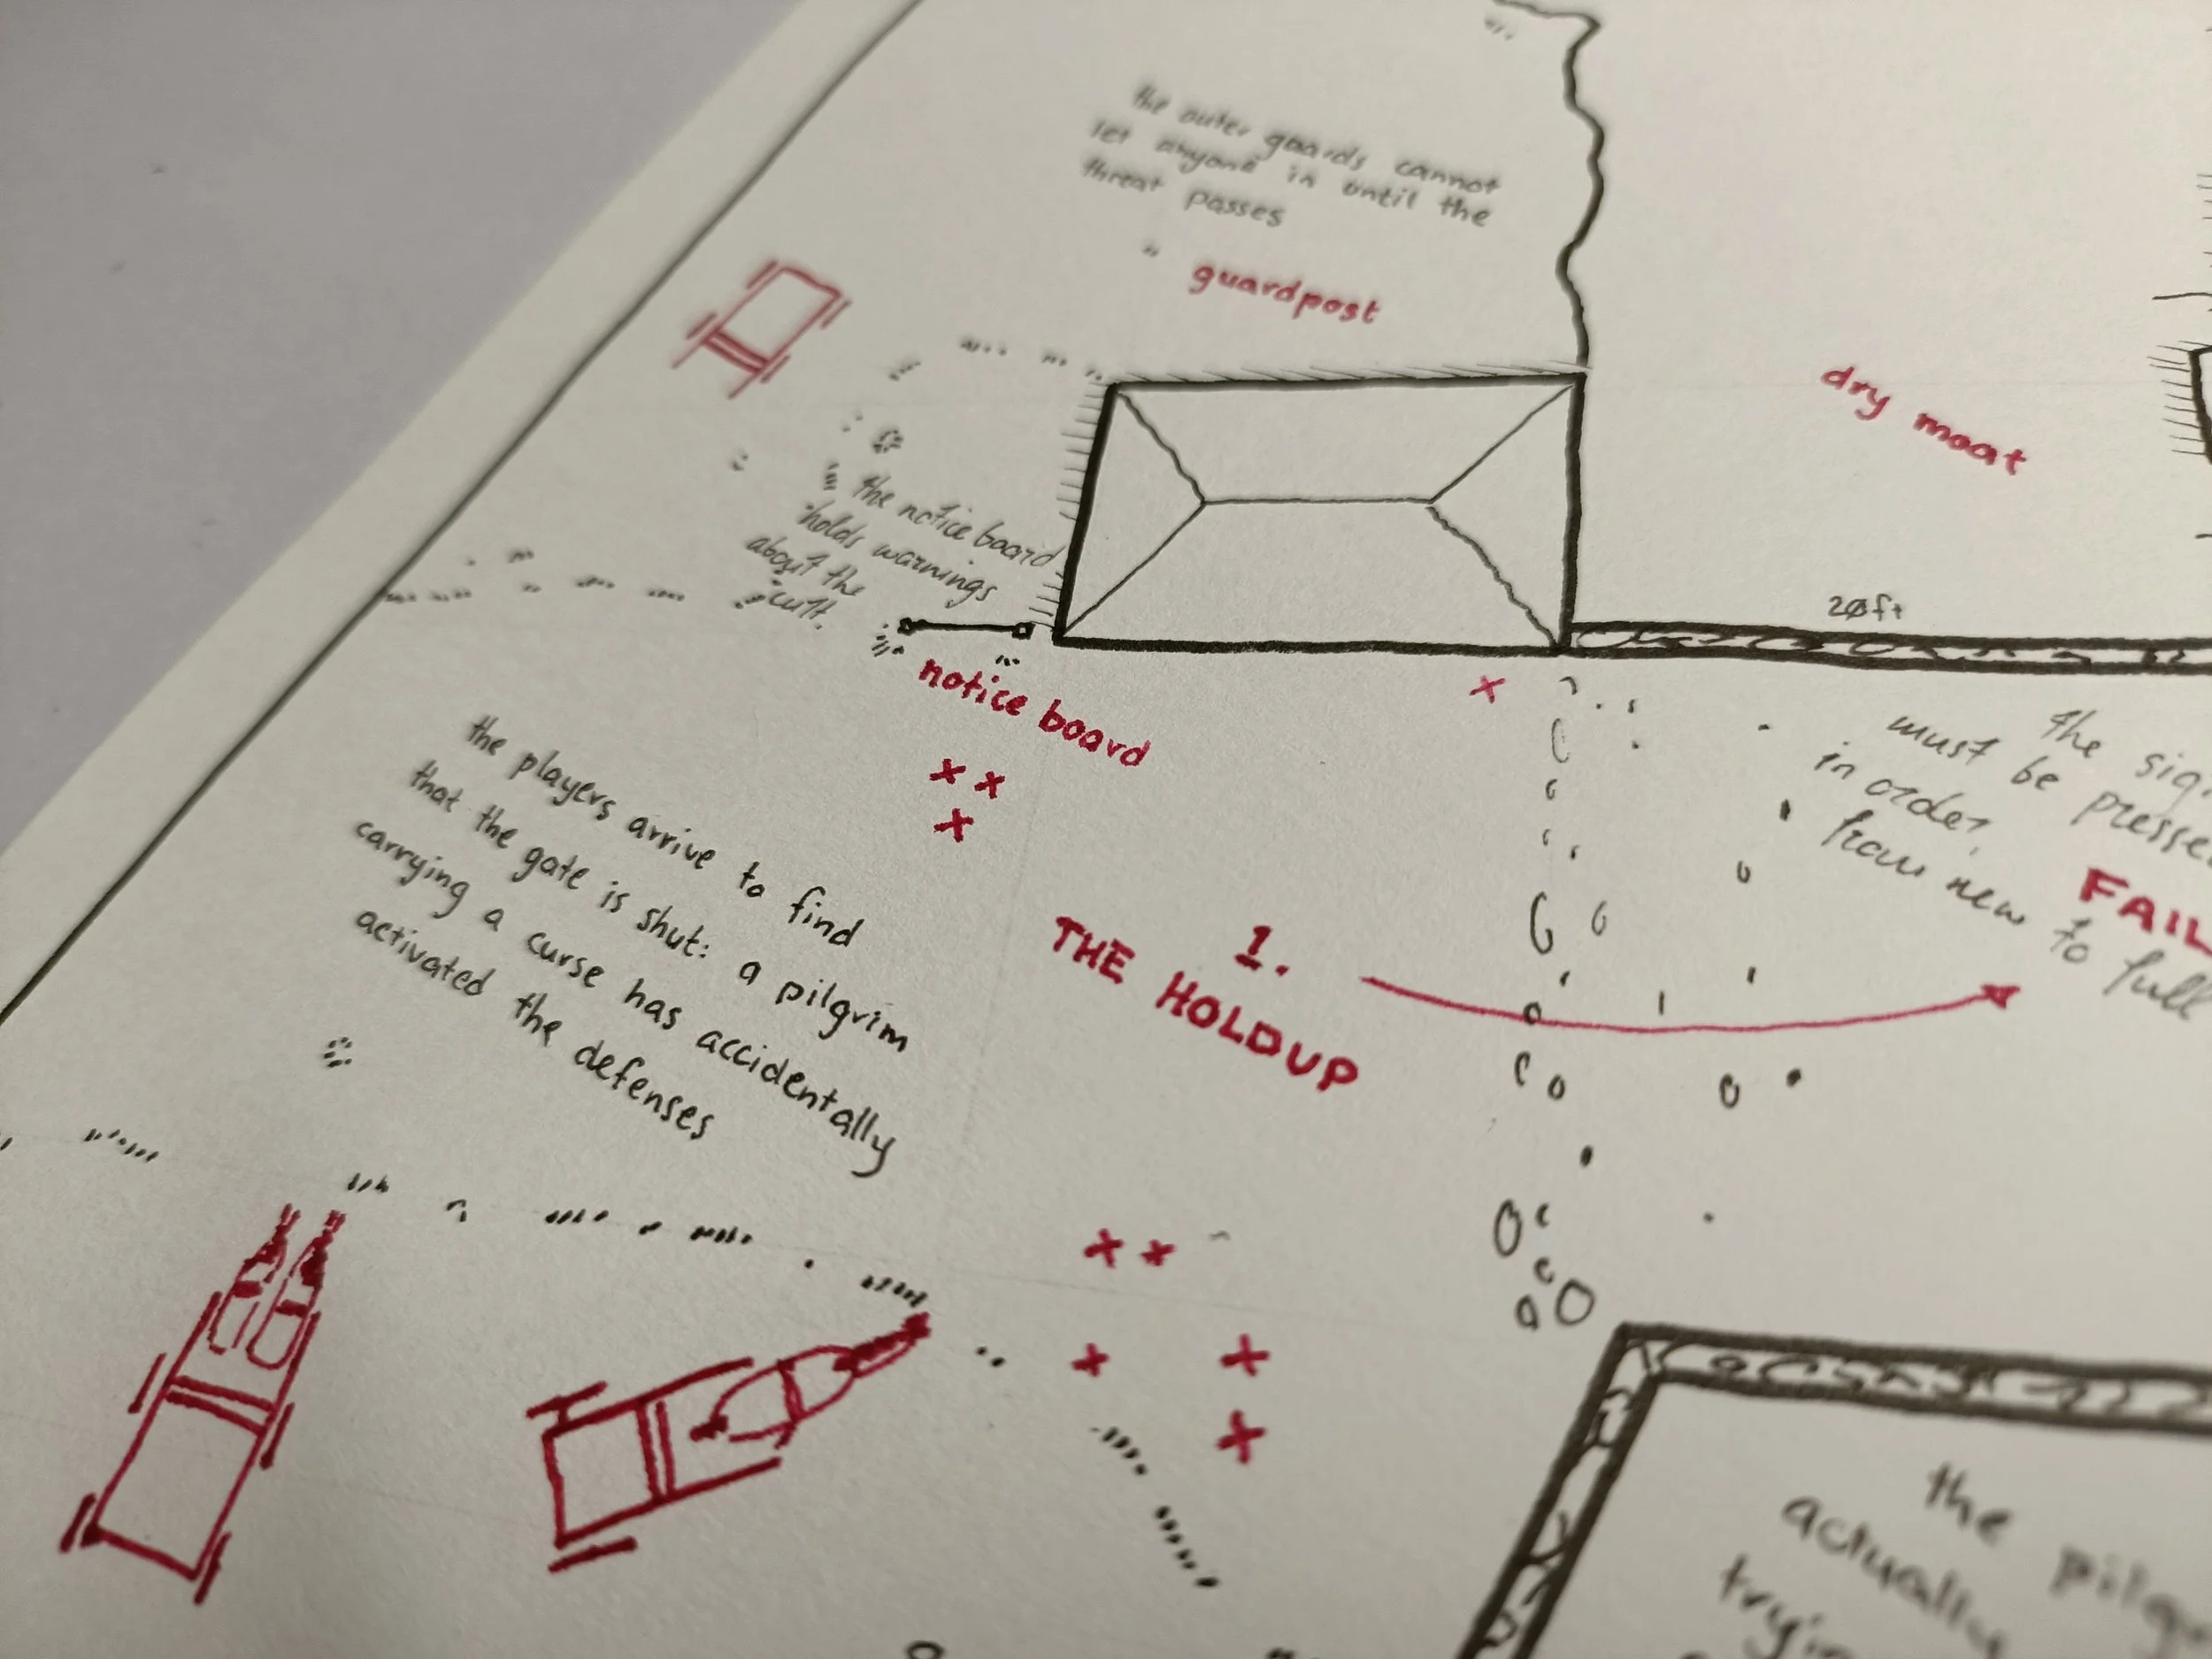 the outer guards cannot
let anyone in until the
threat passes
guardpost
dry moat
the notice board
holds warnings
about the
cult.
20ft
notice board
the players arrive to find
that the gate is shut: a pilgrim
carrying a curse has accidentally
activated the defenses
1.
THE HOLDUP
the
must be
in order,
from new to full
FAIL
the
actually